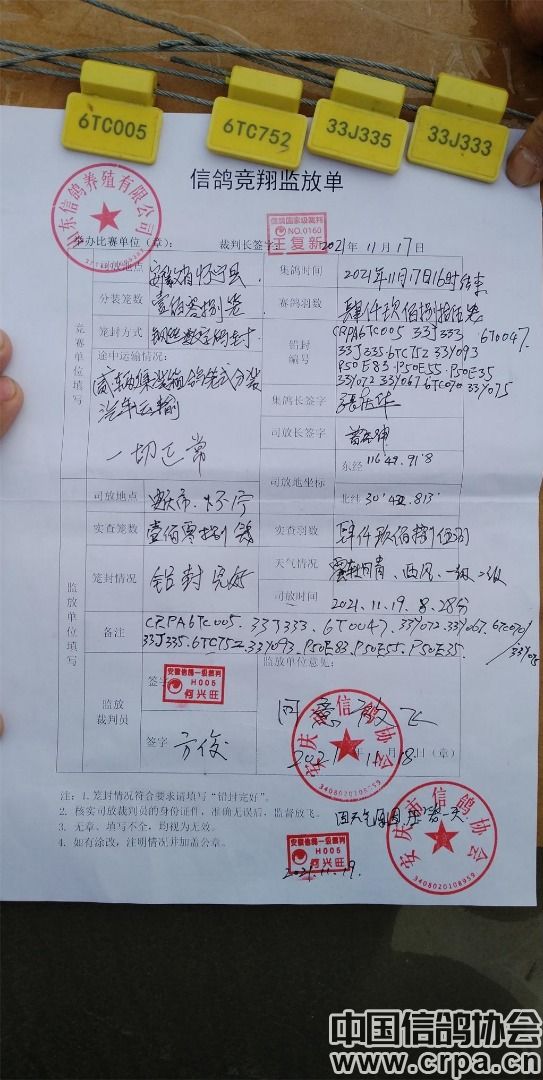 6TC005
6TC752
33J335
33J333
信鸽竞翔监放单
山东信鸽养殖有限公司
举办比赛单位(章):
裁判长签字:
信鸽国家级裁判
NO.0160
王复新
2021年11月17日
竞赛单位填写
司放地点
安徽省怀宁县
集鸽时间
2021年11月17日16时结束
分装笼数
壹佰零捌笼
赛鸽羽数
肆仟玖佰捌拾伍
笼封方式
铅封编号
CRPA6TC005 33J333 6T0047.
33J335.6TC752 33Y093
P50E83 P50E55. P50E35
33Y072 33Y067 6TC070 33Y075
途中运输情况:
汽车运输
一切正常
集鸽长签字
司放长签字
司放地坐标
东经 116°49.91'8
北纬 30°
监放单位填写
司放地点
安庆市.怀宁
实查笼数
壹佰零捌
实查羽数
肆仟玖佰捌
笼封情况
铅封完好
天气情况
西风.一级.二级
司放时间
2021.11.19.8.28分
备注
CRPA6TC005.33J333.6T0047.33Y072.33Y067.6TC070
33J335.6TC752.33Y093.P50E83.P50E55.P50E35.
监放裁判员
签字
安徽信鸽一级裁判
H005
何兴旺
签字
方俊
监放单位意见:
同意放飞
2021年11月18日(章)
安庆市信鸽协会
3408020108959
注:1.笼封情况符合要求请填写“铅封完好”。
2.核实司放裁判员的身份证件,准确无误后,监督放飞。
3.无章、填写不全,均视为无效。
4.如有涂改,注明情况并加盖公章。
因天气原因
一天
安徽信鸽一级裁判
H005
何兴旺
2021.11.19.
安庆市信鸽协会
3408020108959
中国信鸽协会
www.crpa.cn